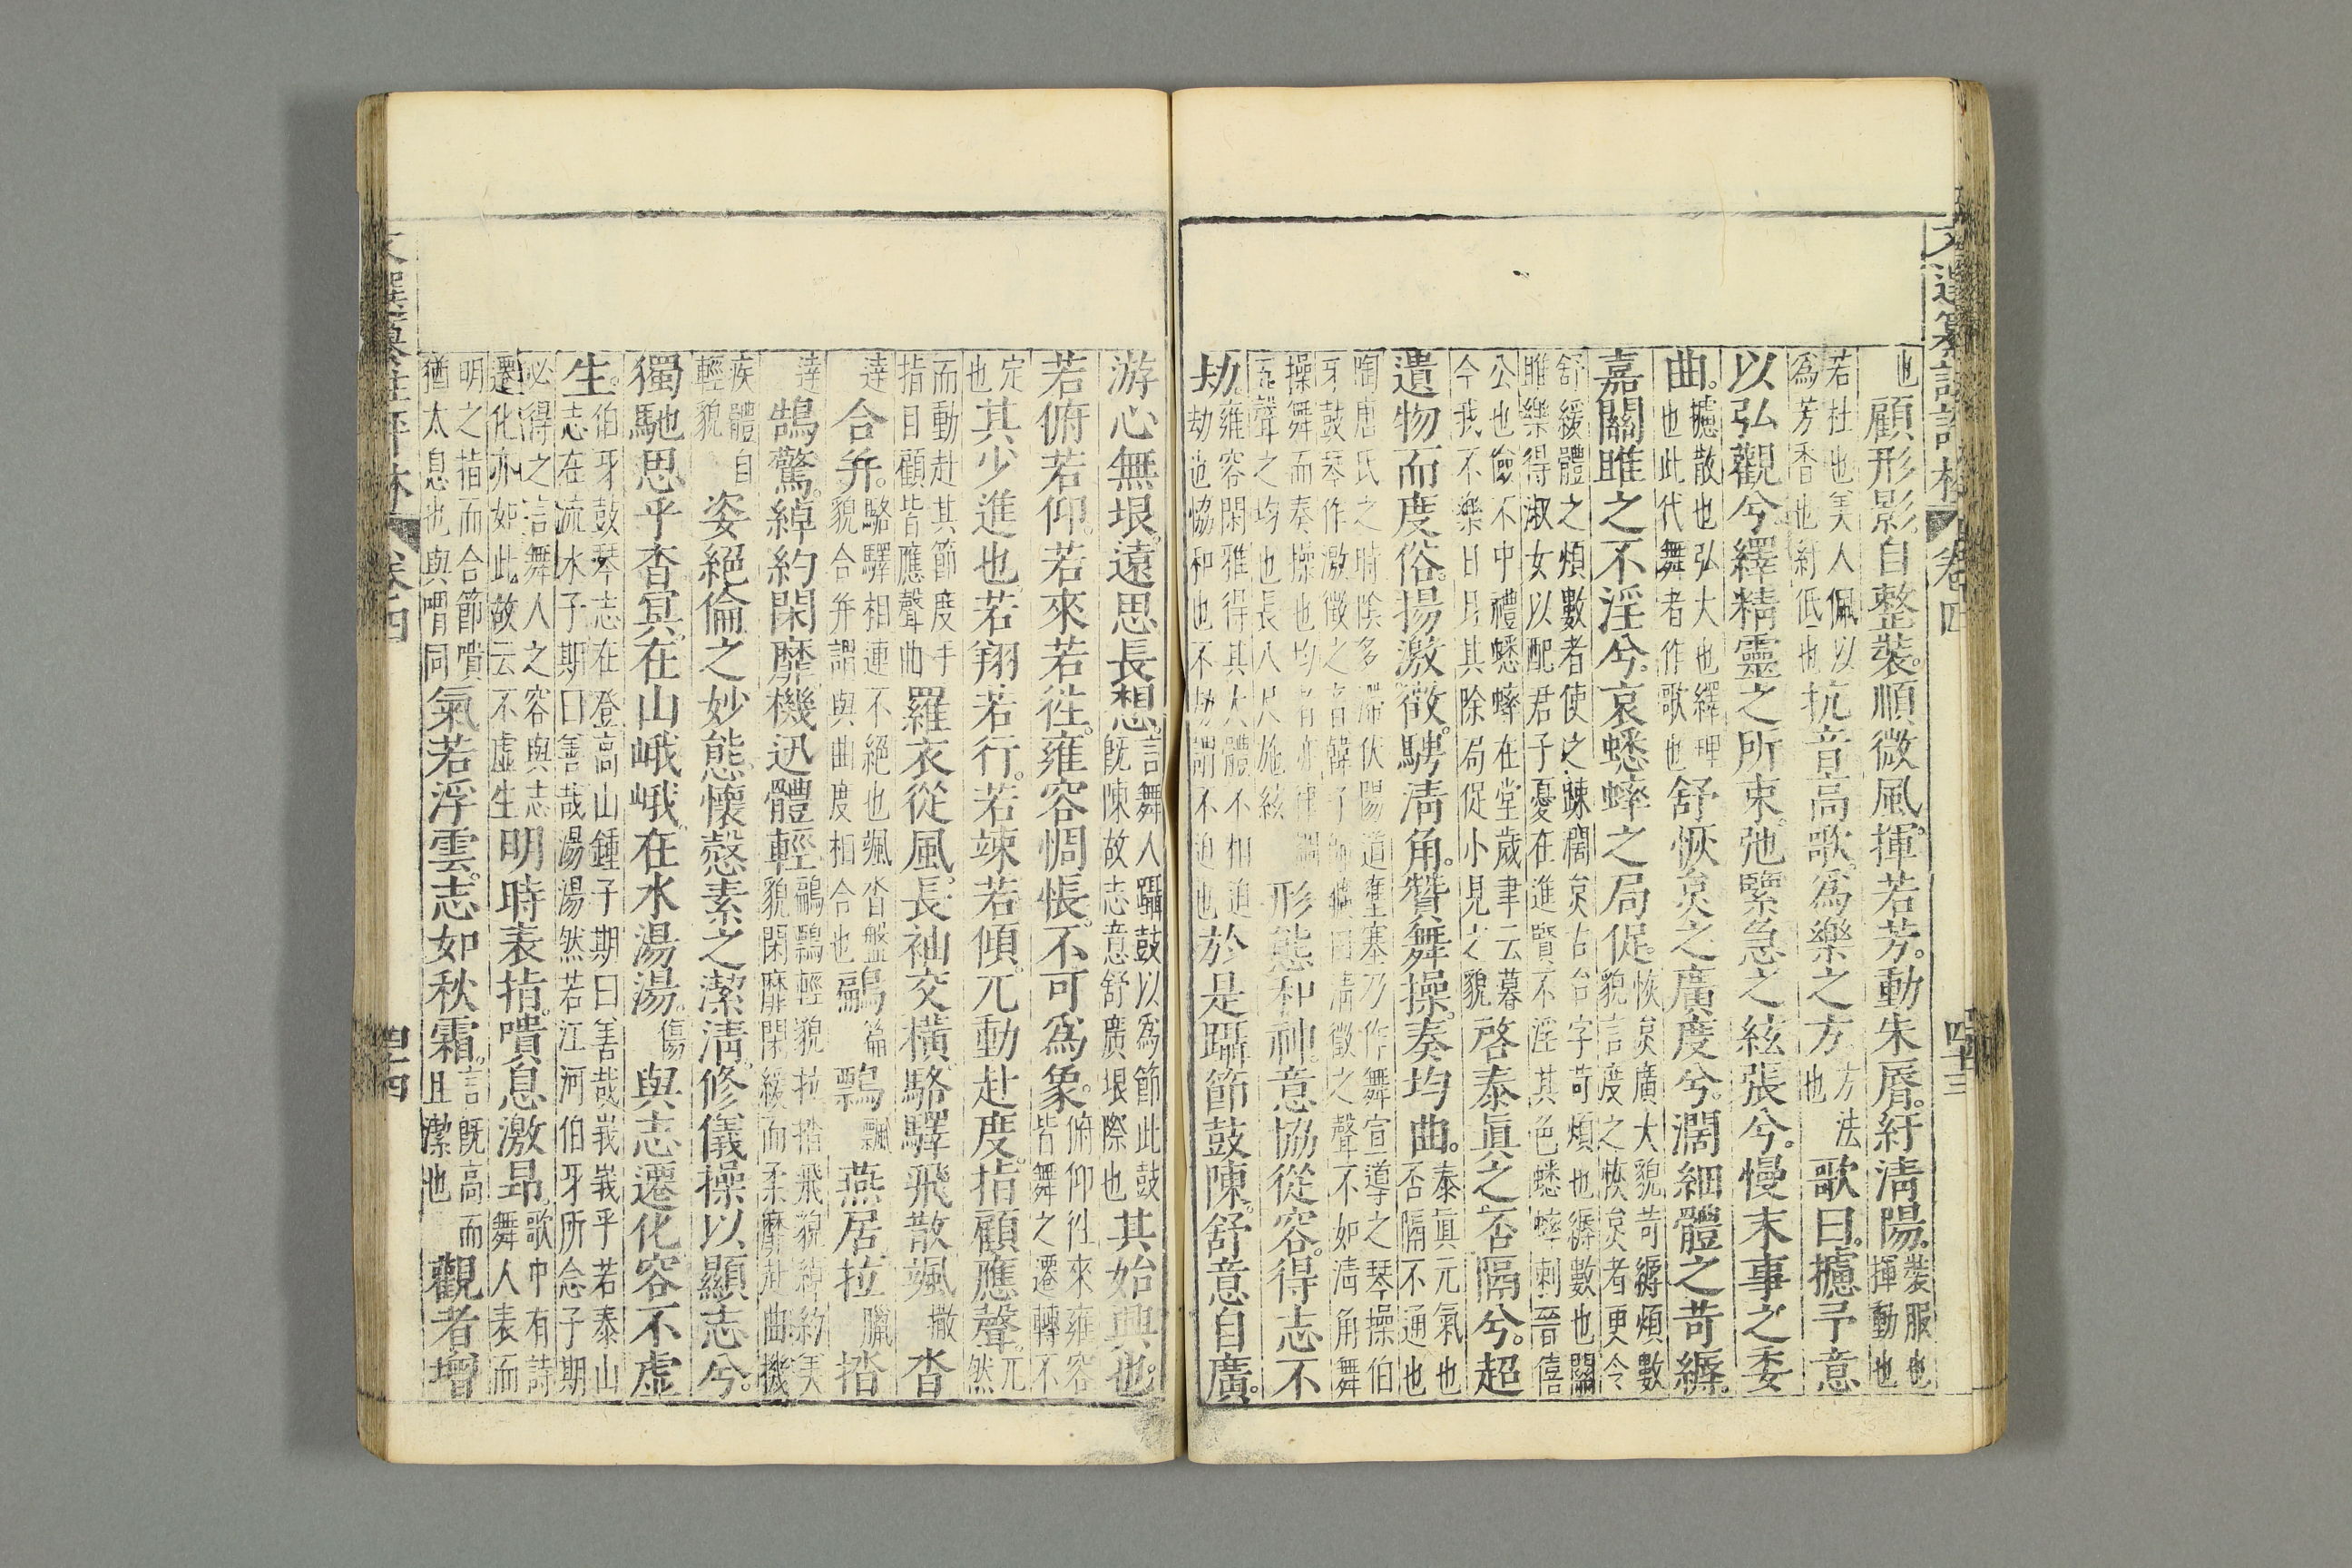 也 顧形影自整裝。順微風。揮若芳。動朱脣。紆清陽。裝服也揮動也
若杜也美人佩以為芳香也紆低也 抗音高歌。為樂之方 方法也 歌曰。攄予意
以弘觀兮。繹精靈之所束。弛緊急之絃張兮。慢末事之委
曲。攄散也弘大也繹理也此代舞者作歌也 舒恢炱之廣度兮。濶細體之苛縟。
嘉關雎之不淫兮。哀蟋蟀之局促。恢炱廣大貌苛縟煩數貌言度之恢炱者更令
舒緩體之煩數者使之踈濶炱古台字苛煩也縟數也關雎樂得淑女以配君子憂在進賢不淫其色蟋蟀刺晉僖
公也儉不中禮蟋蟀在堂歲聿云暮今我不樂日月其除局促小見之貌 啓泰真之否隔兮。超
遺物而度俗。揚激徵。騁清角。贊舞操。奏均曲。泰真元氣也否隔不通也
陶唐氏之時陰多滯伏陽道壅塞乃作舞宣導之琴操伯牙鼓琴作激徵之音韓子師曠曰清徵之聲不如清角舞
操舞而奏操也均者亦律調五聲之均也長八尺施絃 形態和。神意協。從容得。志不
劫。雍容閑雅得其大體不相迫劫也協和也不劫謂不迫也 於是躡節鼓陳。舒意自廣。
游心無垠。遠思長想。言舞人躡鼓以為節此鼓旣陳故志意舒廣垠際也 其始興也。
若俯若仰。若來若往。雍容惆悵。不可為象。俯仰往來雍容皆舞之遷轉不
定也 其少進也。若翔若行。若竦若傾。兀動赴度。指顧應聲。兀然
而動赴其節度手指目顧皆應聲曲 羅衣從風。長袖交橫。駱驛飛散。颯 撒 沓
逹 合并。駱驛相連不絕也颯沓盤貌合并謂與曲度相合也 鶣 篇 鷅 飄 燕居。拉 臘 㧺
逹 鵠驚。綽約閑靡。機迅體輕。鶣鷅輕貌拉㧺飛貌綽約美貌閑靡閑緩而柔靡赴曲機
疾體自輕貌 姿絕倫之妙態。懷慤素之潔清。修儀操以顯志兮。
獨馳思乎杳冥。在山峨峨。在水湯湯。傷 與志遷化。容不虛
生。伯牙鼓琴志在登高山鍾子期曰善哉峩峩乎若泰山志在流水子期曰善哉湯湯然若江河伯牙所念子期
必得之言舞人之容與志遷化亦如此故云不虛生 明時表指。嘳息激昻。歌中有詩舞人表而
明之指而合節嘳猶太息也與喟同 氣若浮雲。志如秋霜。言旣高而且潔也 觀者增
卷四
四十三
卷四
四十四